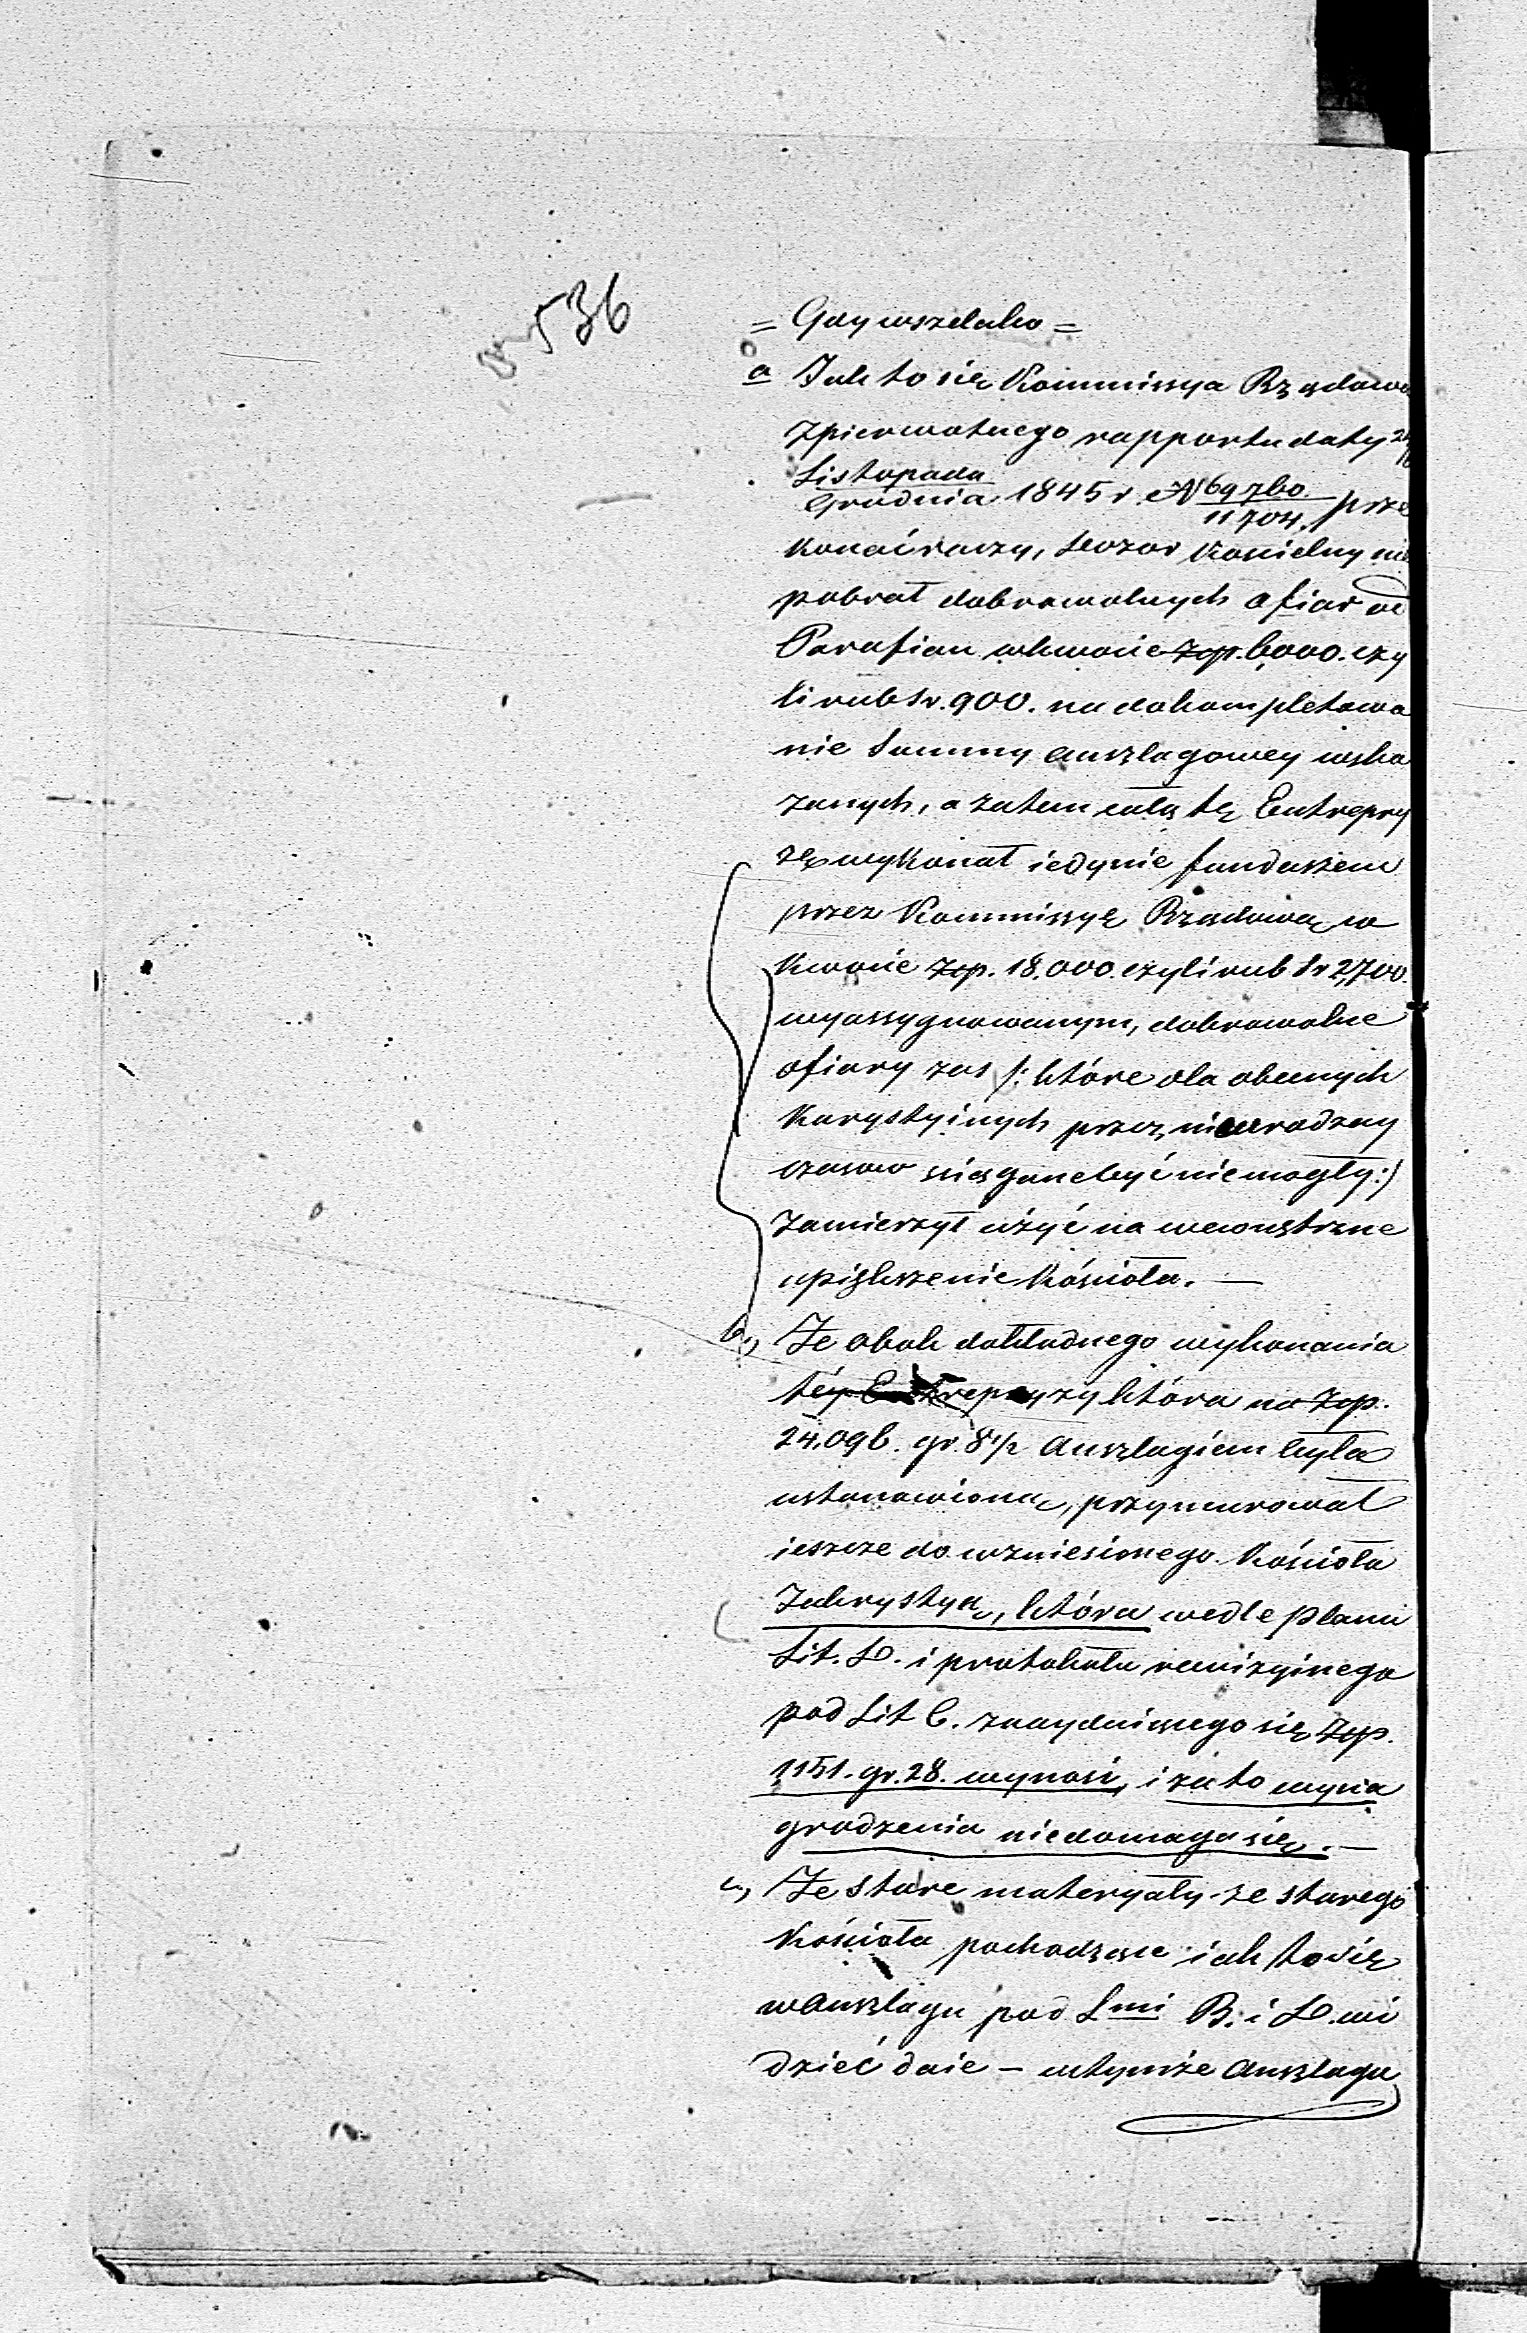 536
= Gdy wszelako =
a Jak to się Kommissya Rządowa
z pierwotnego rapportu daty 24/
Listopada/Grudnia 1845 r. N 69760/11704. prze
konać raczy, Dozor Kościelny nie
pobrał dobrowolnych ofiar od
Parafian w kwocie Złp. 6,000. czy
li rub sr. 900. na dokompletowa
nie Summy anszlagowey wska
zanych, a zatem całą tę Entrepry
zę wykonał iedynie funduszem
przez Kommissyę Rządową w
kwocie Złp. 18.000. czyli rub Sr 2,700.
wyassygnowanym, dobrowolne
ofiary zas /: które dla obecnych
Karystyinych przez nieurodzay
czasow ściągane być nie mogły :/
zamierzył użyć na wewnętrzne
upiększenie Kościoła. —
b, Że obok dokładnego wykonania
téy Entrepryzy która na Złp.
24,096. gr. 8 1/2 Anszlagiem była
ustanowiona, przymurował
ieszcze do wzniesionego Kościoła
Zakrystyą, która wedle planu
Lit. D. i protokołu rewizyinego
pod Lit C. znayduiącego się Złp.
1151. gr. 28. wynosi, i za to wyna
grodzenia niedomaga się. —
c, Że stare materyały ze starego
Kościoła pochodzące iak to się
w Anszlagu pod L mi B. i D. wi
dzieć daie – w tymże Anszlagu